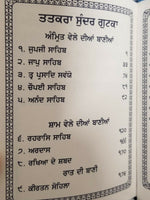 ਤਤਕਰਾ ਸੁੰਦਰ ਗੁਟਕਾ
ਅੰਮ੍ਰਿਤ ਵੇਲੇ ਦੀਆਂ ਬਾਣੀਆਂ
੧. ਜਪੁਜੀ ਸਾਹਿਬ
੨. ਜਾਪੁ ਸਾਹਿਬ
੩. ਤ੍ਵ ਪ੍ਰਸਾਦਿ ਸਵੱਯੇ
੪. ਚੌਪਈ ਸਾਹਿਬ
੫. ਅਨੰਦ ਸਾਹਿਬ
ਸ਼ਾਮ ਵੇਲੇ ਦੀਆਂ ਬਾਣੀਆਂ
੬. ਰਹਰਾਸਿ ਸਾਹਿਬ
੭. ਅਰਦਾਸ
੮. ਰਖਿਆ ਦੇ ਸ਼ਬਦ
ਰਾਤ ਦੀ ਬਾਣੀ
੯. ਕੀਰਤਨ ਸੋਹਿਲਾ